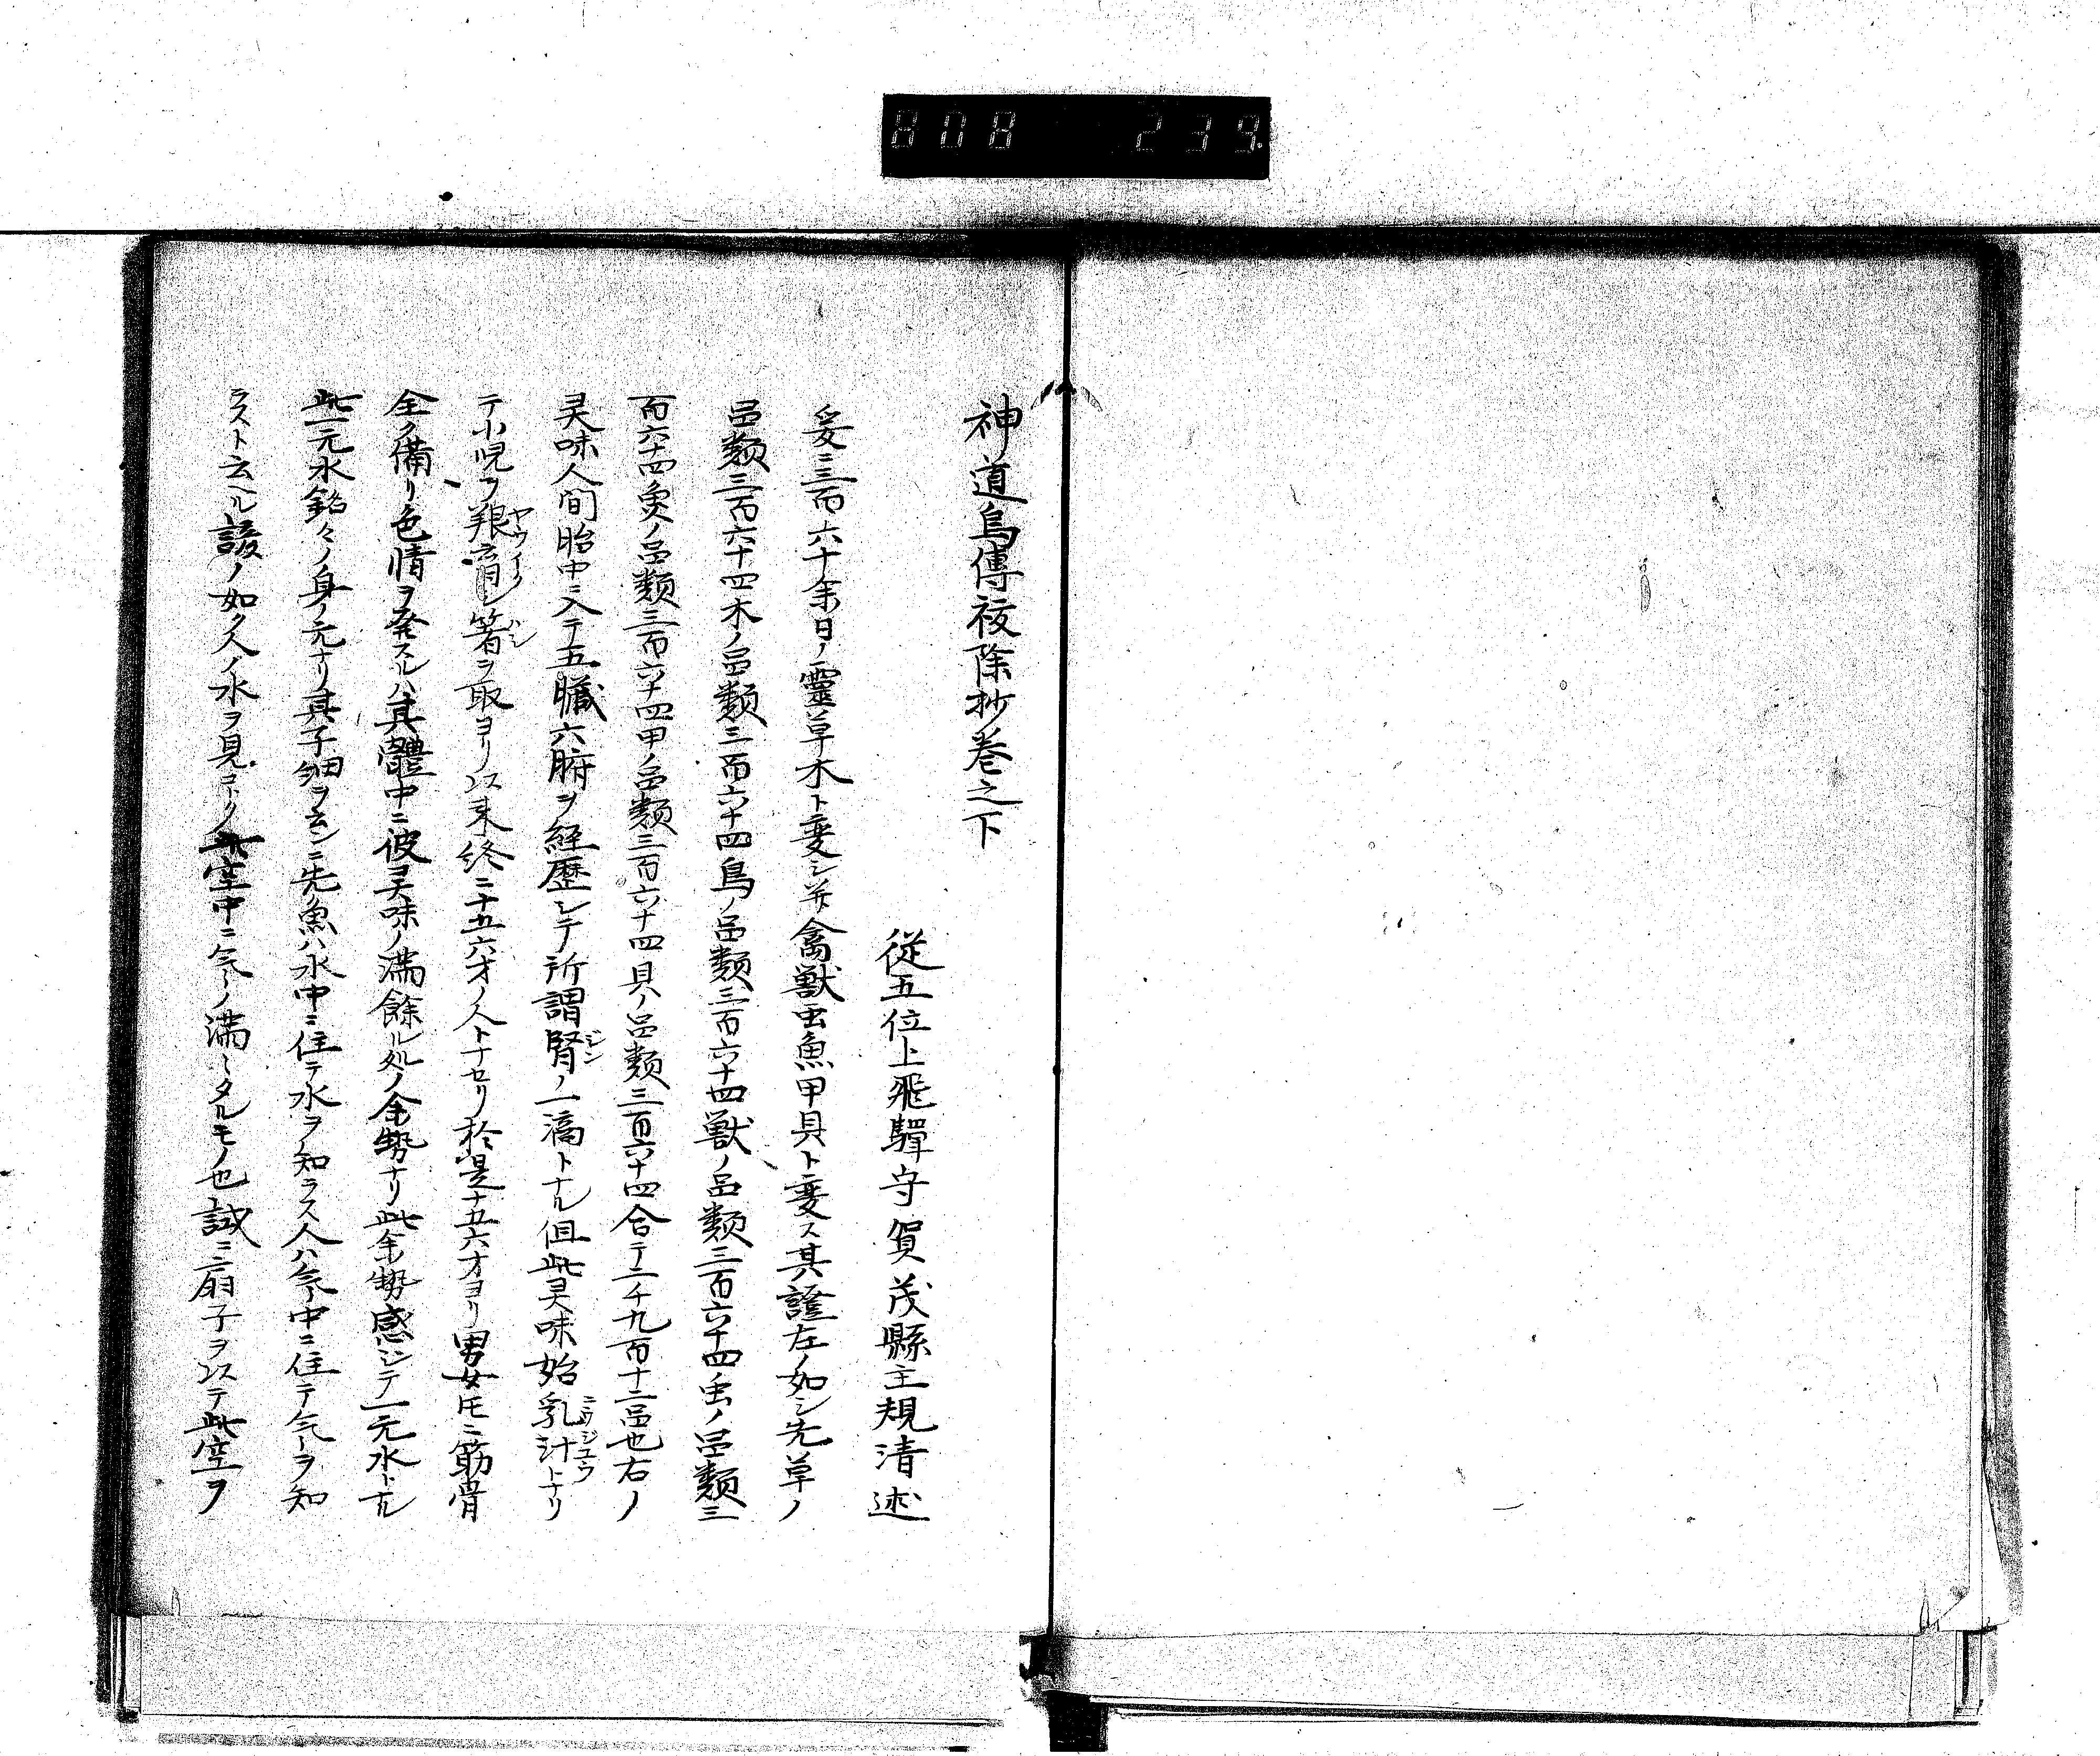 808 239
神道烏傳祓除抄巻之下
従五位上飛驒守賀茂縣主規清述
爰ニ三百六十余日ノ靈草木ト変シ并禽獣虫魚甲貝ト変ス其證左ノ如シ先草ノ
品類三百六十四木ノ品類三百六十四鳥ノ品類三百六十四獣ノ品類三百六十四虫ノ品類三
百六十四魚ノ品類三百六十四甲ノ品類三百六十四貝ノ品類三百六十四合テ二千九百十二品也右ノ
灵味人间胎中ニ入テ五臓六腑ヲ経歴シテ所謂腎ジンノ一滴トナル但此灵味始乳汁ニウジユウトナリ
テ小児ヲ養育ヤウイクシ箸ハシヲ取ヨリ以来終ニ十五六才ノ人トナセリ於是十五六才ヨリ男女𪜈ニ筋骨
全ク備リ色情ヲ発スルハ其體中ニ彼灵味ノ満餘ル処ノ余勢ナリ此余勢感シテ一元水トナル
此一元水銘々ノ身ノ元ナリ其子細ヲ云ンニ先魚ハ水中ニ住テ水ヲ知ラス人ハ气中ニ住テ气ヲ知
ラスト云ヘル諺ノ如ク人ノ水ヲ見コトク此空中ニ气ノ満々タルモノ也誠ニ扇子ヲ以テ此空ヲ